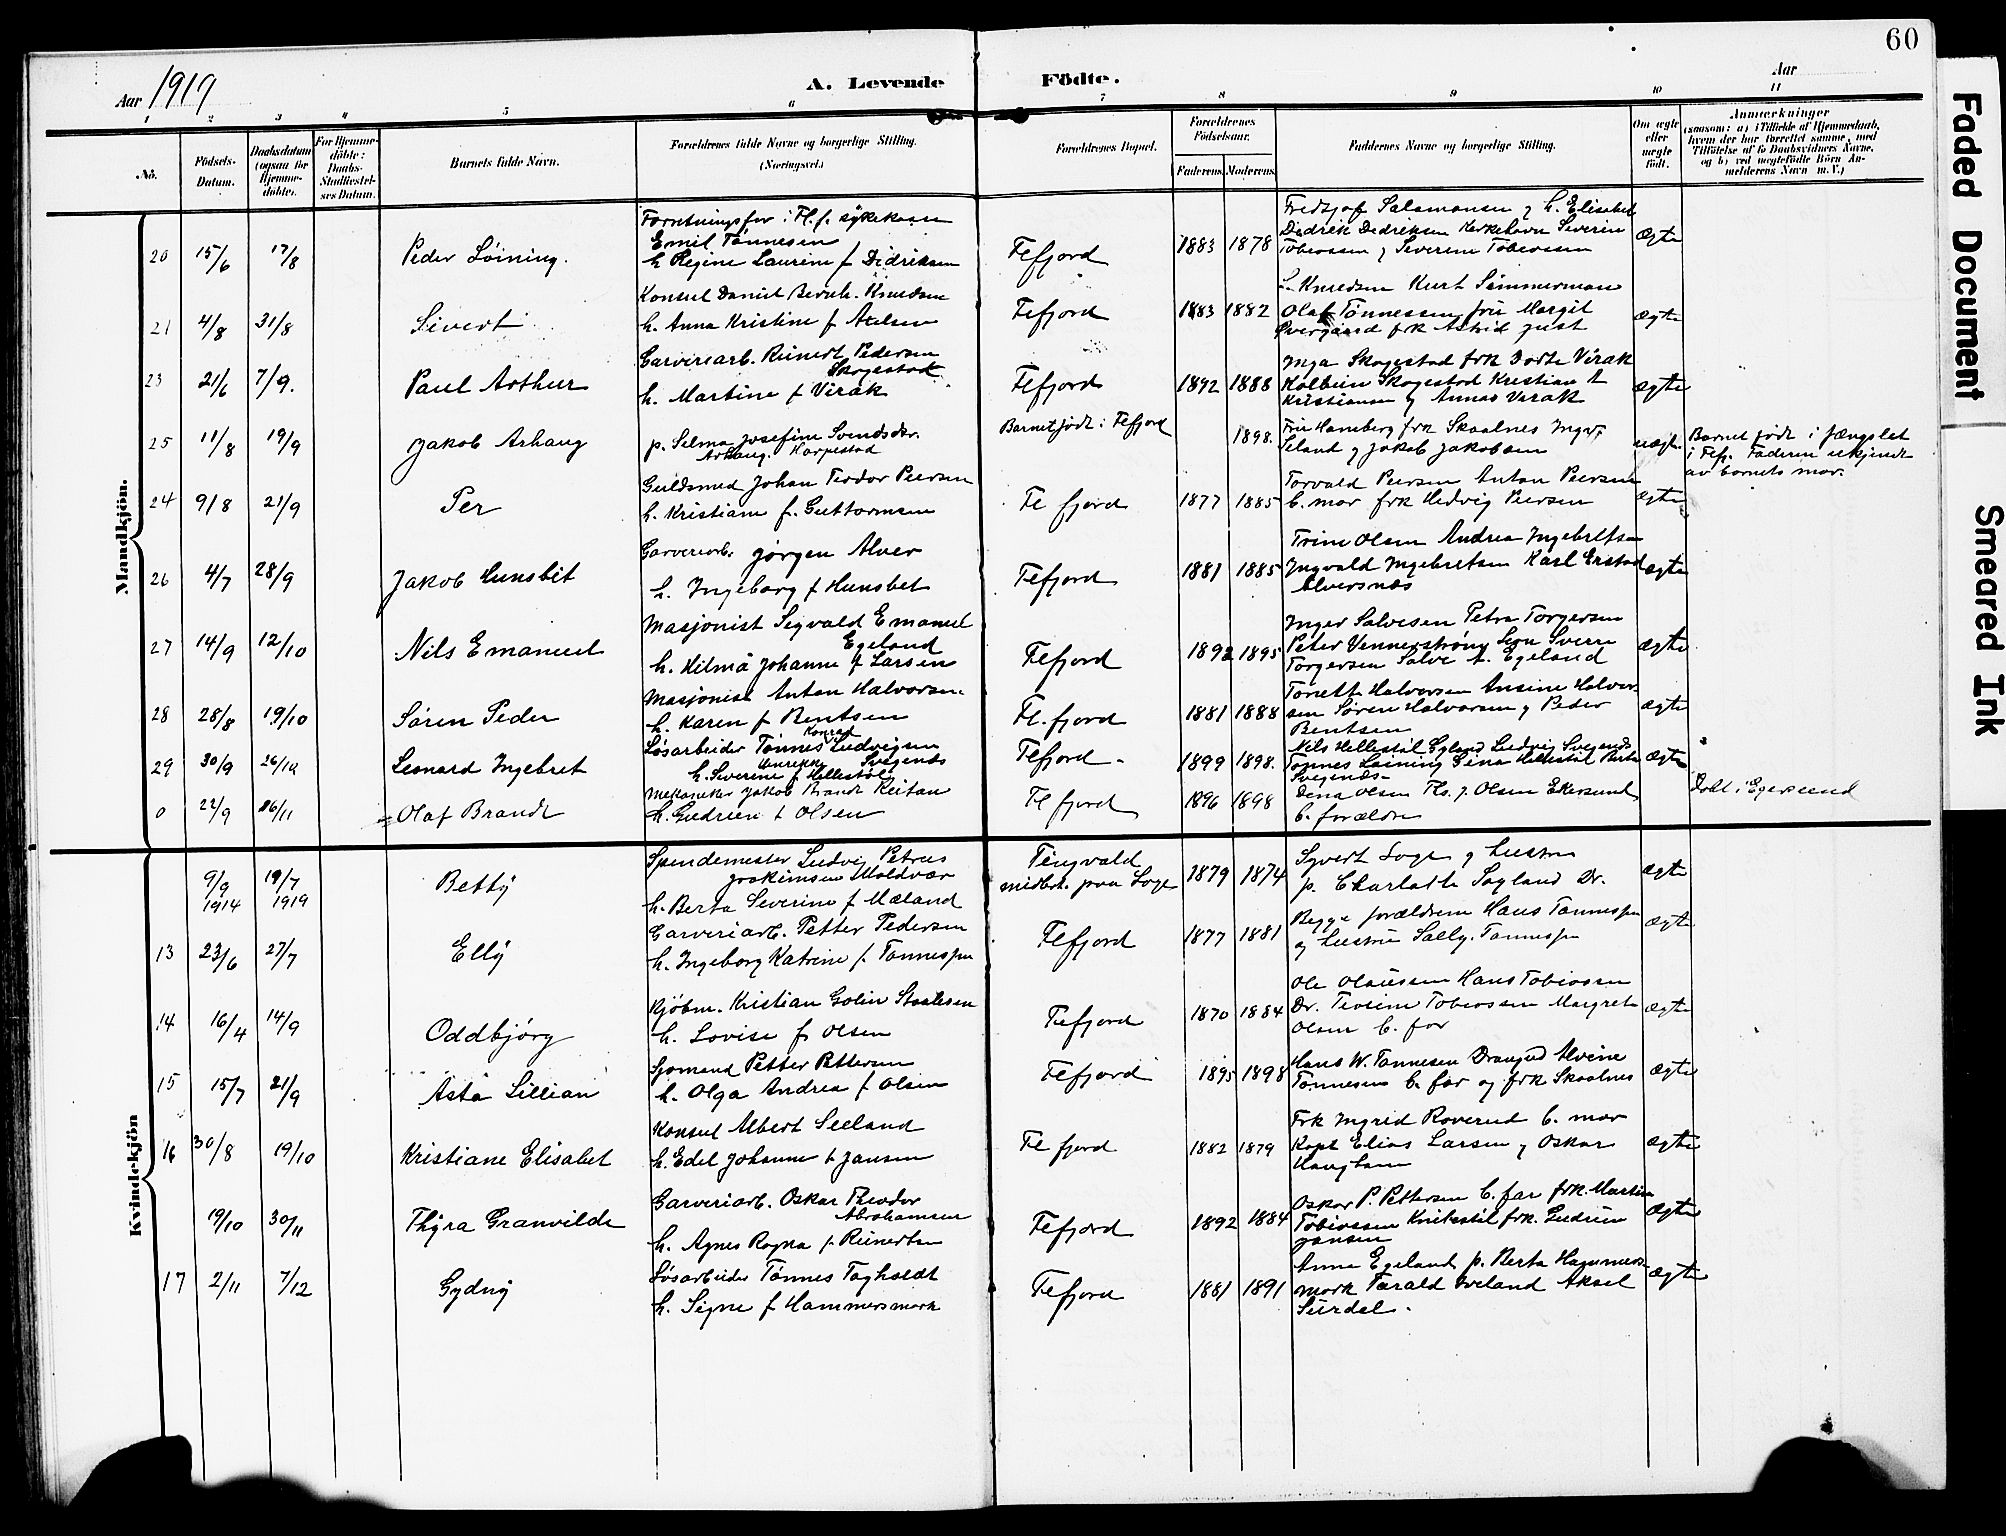 60
Aar 1919
A. Levende Födte.
Aar
1 2 3 4 5 6 7 8 9 10 11
No.
Födsels-Datum.
Daabsdatum (ogsaa for Hjemme-döbte).
For Hjemme-döbte: Daabs-Stadfæstel-ses Datum.
Barnets fulde Navn.
Forældrenes fulde Navne og borgerlige Stilling. (Næringsvei.)
Forældrenes Bopæl.
Forældrenes Födselsaar.
Faderens. Moderens.
Faddernes Navne og borgerlige Stilling.
Om ægte eller uægte födt.
Anmærkninger
(saasom: a) i Tilfælde af Hjemmedaab, hvem der har forrettet samme, med Tilföielse af to Daabsvidners Navne, og b) ved uægtefödte Börn An-melderens Navn m.V.)
Mandkjön.
20 15/6 17/8 Peder Löining.
Forretningsför i Fl.f. sykekasse
Emil Tönnesen
h. Regine Laurine f Didriksen
Flefjord 1883 1878
Fredtjof Salamonsen og h. Elisabet
Didrik Didriksen Kirkehavn Severin
Tobiassen og Severine Tobiassen
Ægte
21 4/8 31/8 Sivert
Konsul Daniel Bernh. Knudsen
h. Anna Kristine f Axelsen
Flefjord 1883 1882
Knudsen Kurt Simmerman
Olaf Tönnessen, fru Margit
Overgaard frk Astrid Just
Ægte
23 21/6 7/9. Paul Arthur
Garveriarb. Reinert Pedersen
Skogestad
h. Martine f Virak
Flefjord 1892 1888
Inga Skogestad frk Dorte Virak
Kolbein Skogestad Kristian A
Kristiansen og Annas Virak
Ægte
25 11/8 19/9 Jakob Arhaug
p. Selma Josefine Svendsdr.
Arhaug. Harpestad
Barnet födt i Flefjord 1898.
Fru Hamberg frk Skaalnes Ingv.
Seland og Jakob Jakobsen
uægt.
Barnet födt i fængslet
i Flf. Faderen ukjendt
av barnets mor.
24 9/8 21/9 Per
Guldsmed Johan Teodor Peersen
h. Kristiane f. Guttormsen
Fle fjord 1877 1885
Torvald Peersen Anton Peersen
b. mor frk Hedvig Peersen
Ægte
26 4/7 28/9 Jakob Hunsbet
Garveriarb. Jörgen Alver
h. Ingeborg f Hunsbet
Flefjord 1881 1885
Trine Olsen Andrea Ingebretsen
Ingvald Ingebretsen Karl Erstad
Alversnæs
Ægte
27 14/9 12/10 Nils Emanuel
Masjonist Sigvald Emanuel
Egeland
h. Hilma Johanne f Larsen
Flefjord 1892 1895
Inger Salvesen Petra Torgersen
Peter Vennerström Sverre
Torgersen Salve A. Egeland
Ægte
28 28/8 19/10 Sören Peder
Masjonist Anton Halvorsen
h. Karen f Bentsen
Fl.fjord 1881 1888
Tonette Halvorsen Ansine Halvor-
sen Sören Halvorsen og Peder
Bentsen
Ægte
29 30/9 26/10 Leonard Ingebret
Konrad
Lösarbeider Tönnes Ludvigsen
Svegends
h. Severine f Hellestöl
Flefjord 1899 1898.
Nils Hellestöl Egland Ludvig Svegends
Tönnes Löining Gina Hellestöl Berta
Svegends
Ægte
0 22/9 16/11 Olaf Brandt
Mekaniker Jakob Brandt Reitan
h. Gudrun f Olsen
Fl fjord 1896 1898
Dina Olsen Ths. J. Olsen Ekersund
b. forældre
Döbt i Egersund
Kvindekjön
9/9 1914 19/7 1919 Betty
Spindemester Ludvig Petrus
Joakimsen Moldvær
h. Berta Severine f Mæland
Tingvald
midlert. paa Loge 1879 1874
Syvert Loge og hustru
p. Charlotte Sogland Dr.
Ægte
13 23/6 27/7 Elly
Garveriarb. Petter Pedersen
h. Ingeborg Katrine f. Tönnessen
Flefjord 1877 1881
Begge forældrene Hans Tönnessen
og hustru Sally. Tönnessen
Ægte
14 16/4 14/9 Oddbjörg
Kjöbm. Kristian Golin Staalesen
h. Lovise f. Olsen
Flefjord 1870 1884
Ole Olaussen Hans Tobiassen
Dr. Tobiassen Margret
Olsen b. far
Ægte
15 15/7 21/9 Asta Lillian
Sjomand Petter Pettersen
h. Olga Andrea f Olsen
Flefjord 1895 1898
Hans W. Tönnesen Drangeid Alvine
Tönnesen b. far og frk Skaalnes
Ægte
16 30/8 19/10 Kristiane Elisabet
Konsul Albert Seeland
h. Edel Johanne f Jansen
Fle fjord 1882 1879
Frk Ingrid Roverud b. mor
Kapt Elias Larsen og Oskar
Haugland
Ægte
19/10 30/11 Thyra Granvilde
Garveriarb. Oskar Theodor
Abrahamsen
h. Agnes Ragna f Reinertsen
Flefjord 1892 1884
Oskar P. Pettersen b. far frk. Martine
Tobiassen frk. Gudrun
Jansen
Ægte
17 2/11 7/12 Gydny
Lösarbeider Tönnes Tagholdt
h. Signe f Hammersmark
Flefjord 1881 1891
Anna Egeland p. Berta Hammers-
mark Tarald Iveland Aksel
Sirdal.
Ægte
Faded Document
Smeared Ink